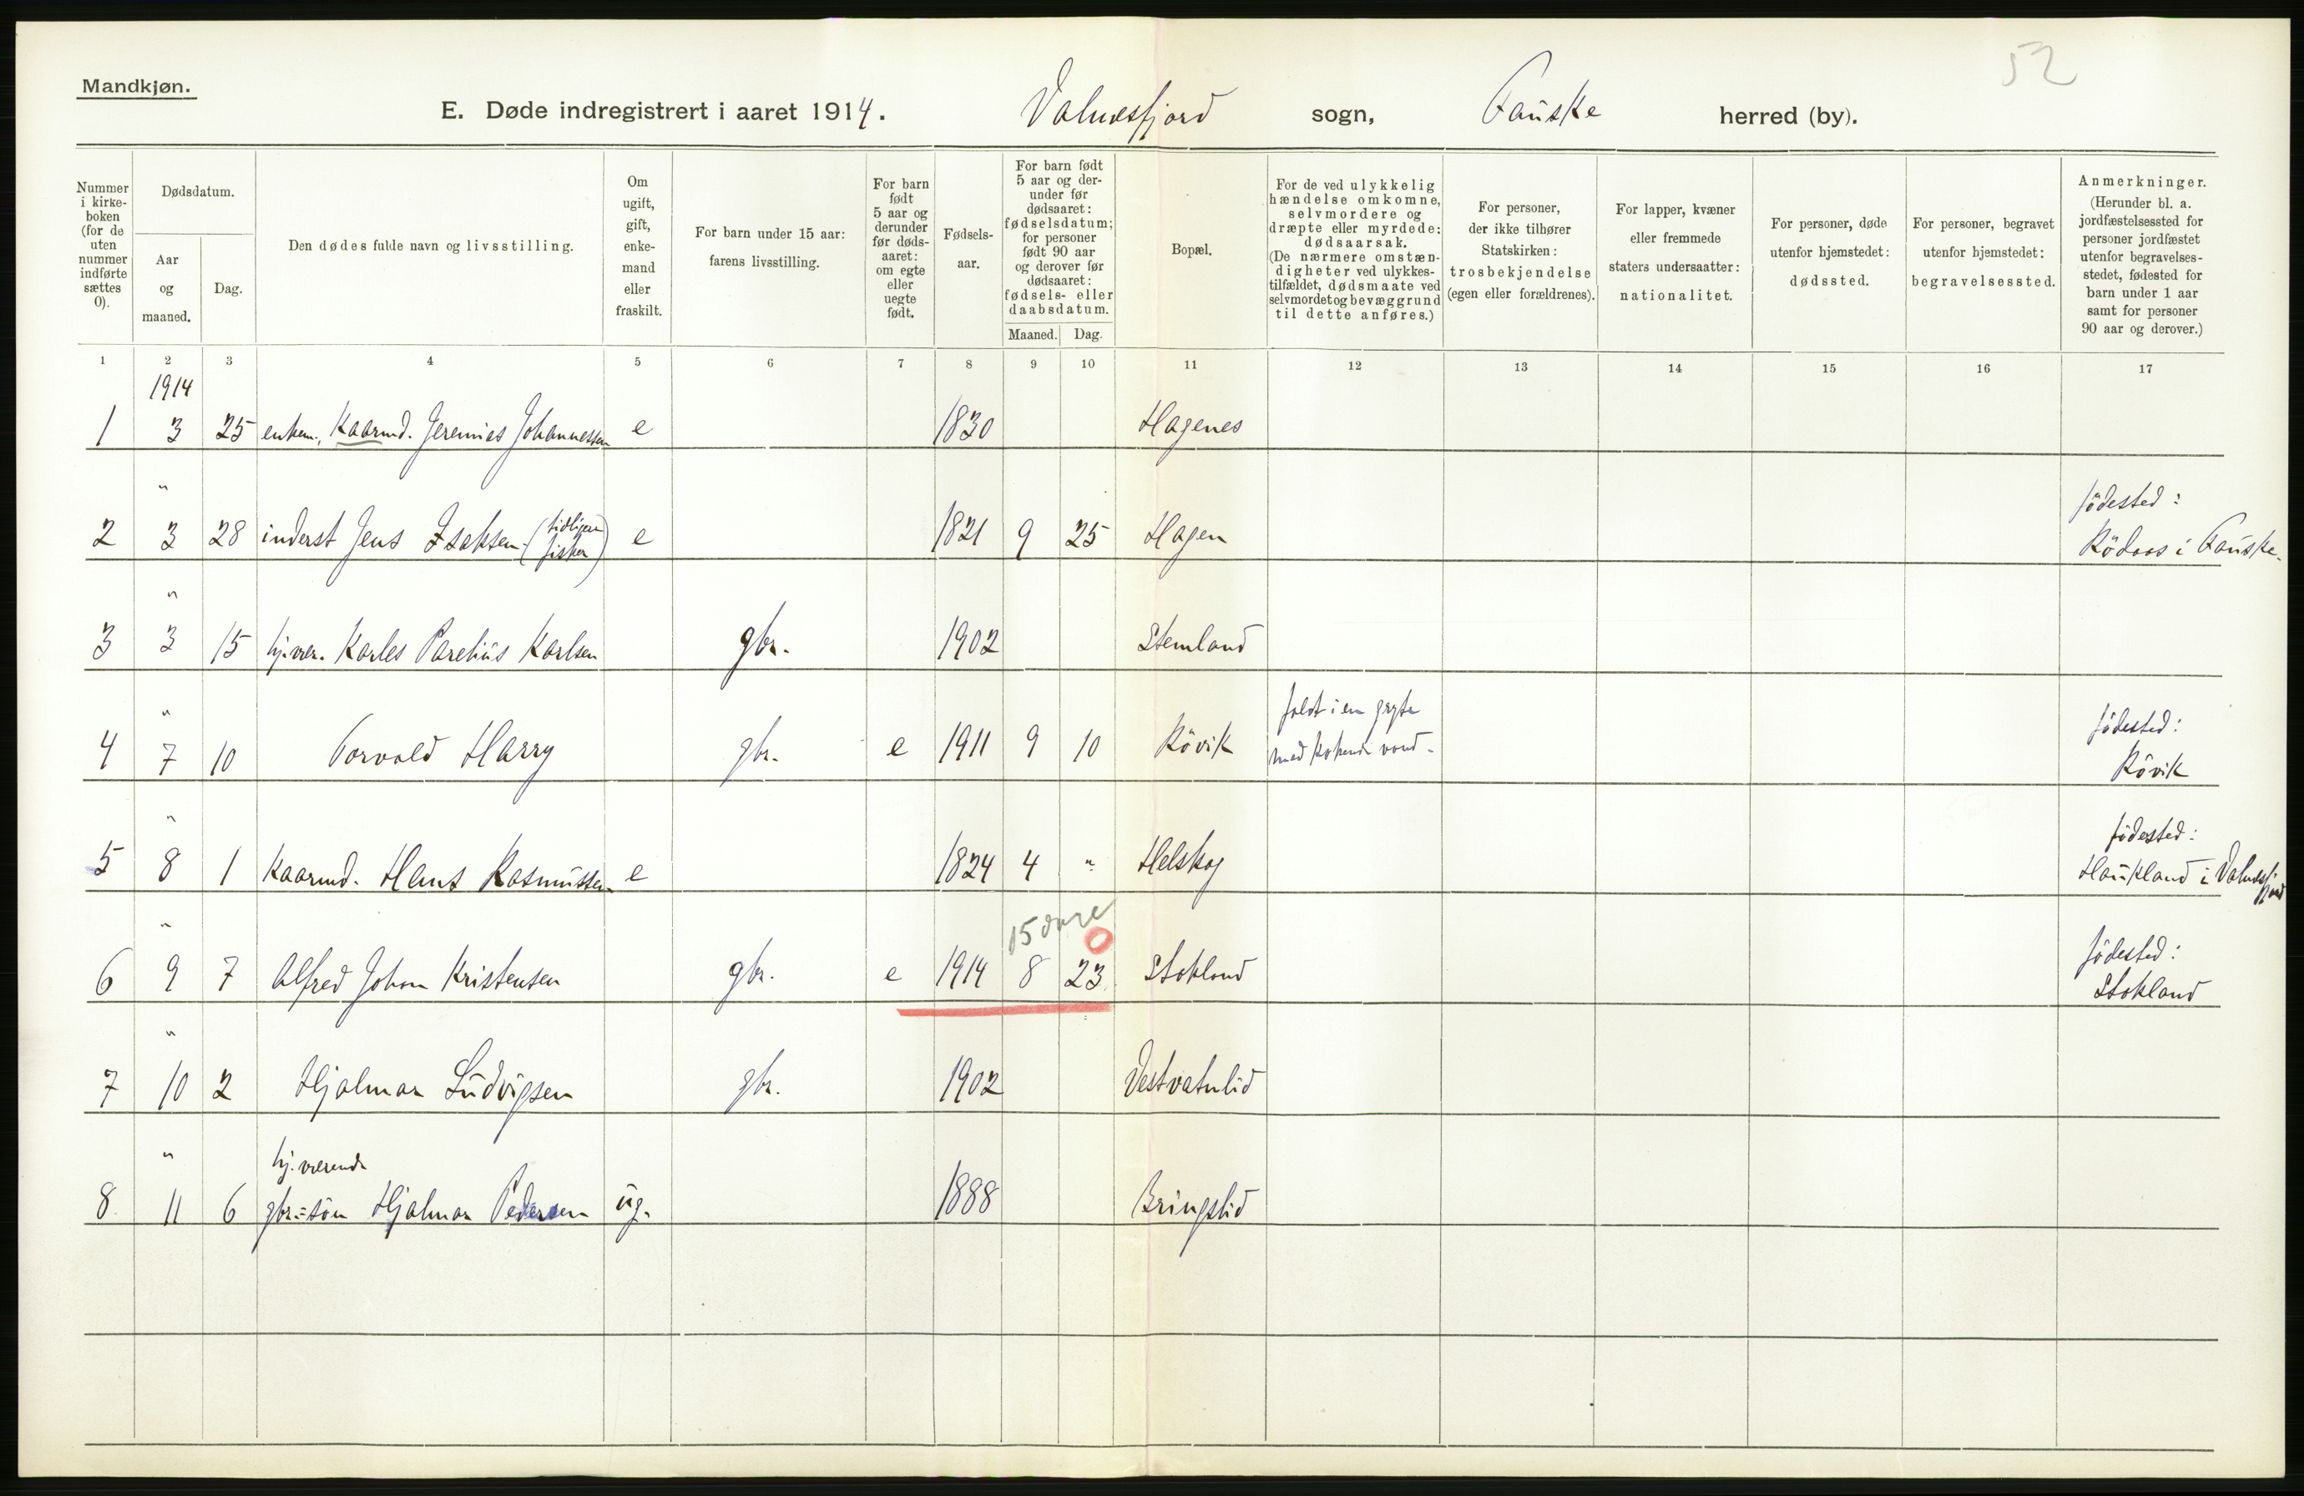 52
Mandkjøn.
E. Døde indregistrert i aaret 1914. Valnesfjord sogn, Fauske herred (by).
Nummer i kirkeboken (for de uten nummer indførte sættes 0).
Dødsdatum.
Aar og maaned.
Dag.
Den dødes fulde navn og livsstilling.
Om ugift, gift, enkemand eller fraskilt.
For barn under 15 aar: farens livsstilling.
For barn født 5 aar og derunder før dødsaaret: om egte eller uegte født.
Fødselsaar.
For barn født 5 aar og derunder før dødsaaret: fødselsdatum; for personer født 90 aar og derover før dødsaaret: fødsels- eller daabsdatum.
Maaned. Dag.
Bopæl.
For de ved ulykkelig hændelse omkomne, selvmordere og dræpte eller myrdede: dødsaarsak. (De nærmere omstændigheter ved ulykkestilfældet, dødsmaate ved selvmordet og bevæggrund til dette anføres.)
For personer, der ikke tilhører Statskirken: trosbekjendelse (egen eller forældrenes).
For lapper, kvæner eller fremmede staters undersaatter: nationalitet.
For personer, døde utenfor hjemstedet: dødssted.
For personer, begravet utenfor hjemstedet: begravelsessted.
Anmerkninger. (Herunder bl. a. jordfæstelsessted for personer jordfæstet utenfor begravelsesstedet, fødested for barn under 1 aar samt for personer 90 aar og derover.)
1 2 3 4 5 6 7 8 9 10 11 12 13 14 15 16 17
1914
1 3 25 enkem. Kaarmd. Jeremias Johannessen e 1830 Hagenes
" födested:
2 3 28 inderst Jens Isaksen (tidligere fisker) e 1821 9 25 Hagen Rödaas i Fauske.
"
3 3 15 hj.vær. Karles Parelius Karlsen gbr. 1902 Stemland
" faldt i en gryte födested:
4 7 10 Torvald Harry gbr. e 1911 9 10 Rövik med kokende vand. Rövik
" födested:
5 8 1 Kaarmd. Hans Rasmussen e 1824 4 " Helskog Haukland i Valnesfjord
" 15 dage 0 födested:
6 9 7 Alfred Johan Kristensen gbr. e 1914 8 23 Stokland Stokland
"
7 10 2 Hjalmar Ludvigsen gbr. 1902 Vestvatnlid
" hj.værende
8 11 6 gbr.=sön Hjalmar Pedersen ug. 1888 Bringslid